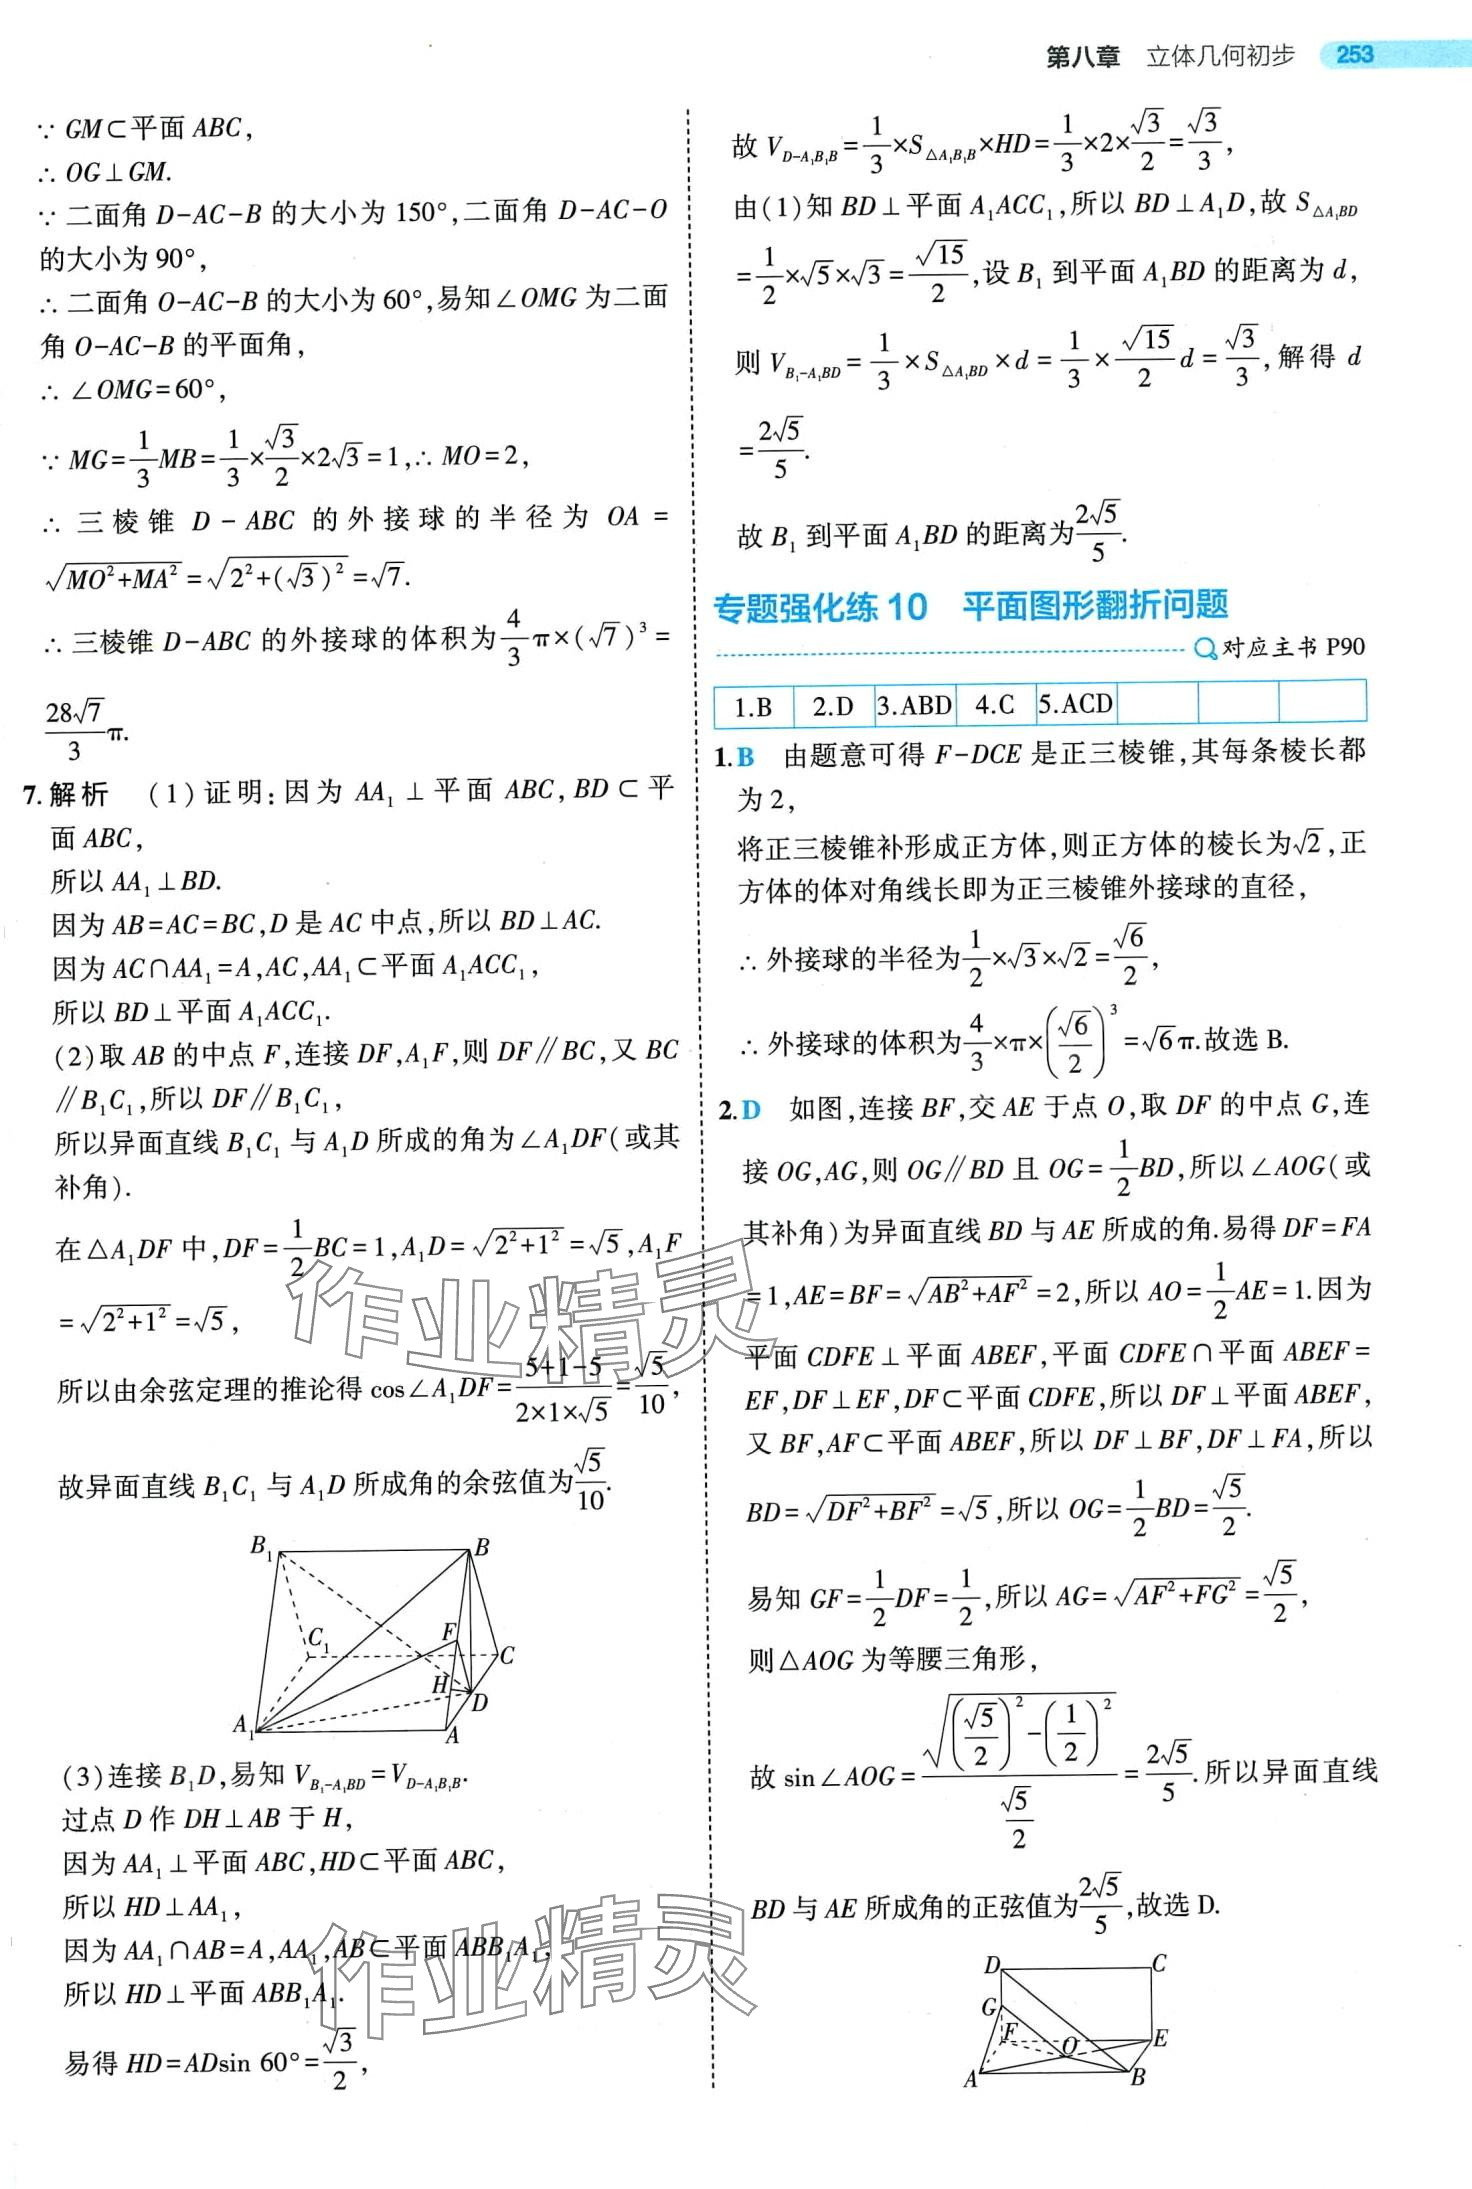 第八章 立体几何初步 253
∵ GM⊂平面 ABC,
∴ OG⊥GM.
∵ 二面角 D-AC-B 的大小为 150°,二面角 D-AC-O
的大小为 90°,
∴ 二面角 O-AC-B 的大小为 60°,易知∠OMG 为二面
角 O-AC-B 的平面角,
∴ ∠OMG=60°,
∵ MG=1/3 MB=1/3×√3/2×2√3=1,∴ MO=2,
∴ 三棱锥 D-ABC 的外接球的半径为 OA =
√(MO²+MA²)=√(2²+(√3)²)=√7.
∴ 三棱锥 D-ABC 的外接球的体积为4/3 π×(√7)³=
28√7/3 π.
7.解析 (1)证明:因为 AA₁⊥平面 ABC,BD⊂平
面 ABC,
所以 AA₁⊥BD.
因为 AB=AC=BC,D 是 AC 中点,所以 BD⊥AC.
因为 AC∩AA₁=A,AC,AA₁⊂平面 A₁ACC₁,
所以 BD⊥平面 A₁ACC₁.
(2)取 AB 的中点 F,连接 DF,A₁F,则 DF∥BC,又 BC
∥B₁C₁,所以 DF∥B₁C₁,
所以异面直线 B₁C₁ 与 A₁D 所成的角为∠A₁DF(或其
补角).
在△A₁DF 中,DF=1/2 BC=1,A₁D=√(2²+1²)=√5,A₁F
=√(2²+1²)=√5,
所以由余弦定理的推论得 cos∠A₁DF=(5+1-5)/(2×1×√5)=√5/10,
故异面直线 B₁C₁ 与 A₁D 所成角的余弦值为√5/10.
B₁ B
C₁ F C
H D
A₁ A
(3)连接 B₁D,易知 V_{B₁-A₁BD}=V_{D-A₁B₁B}.
过点 D 作 DH⊥AB 于 H,
因为 AA₁⊥平面 ABC,HD⊂平面 ABC,
所以 HD⊥AA₁,
因为 AA₁∩AB=A,AA₁,AB⊂平面 ABB₁A₁,
所以 HD⊥平面 ABB₁A₁.
易得 HD=ADsin 60°=√3/2,
故 V_{D-A₁B₁B}=1/3×S_{△A₁B₁B}×HD=1/3×2×√3/2=√3/3,
由(1)知 BD⊥平面 A₁ACC₁,所以 BD⊥A₁D,故 S_{△A₁BD}
=1/2×√5×√3=√15/2,设 B₁ 到平面 A₁BD 的距离为 d,
则 V_{B₁-A₁BD}=1/3×S_{△A₁BD}×d=1/3×√15/2 d=√3/3,解得 d
=2√5/5.
故 B₁ 到平面 A₁BD 的距离为2√5/5.
专题强化练 10 平面图形翻折问题
对应主书 P90
1.B 2.D 3.ABD 4.C 5.ACD
1.B 由题意可得 F-DCE 是正三棱锥,其每条棱长都
为 2,
将正三棱锥补形成正方体,则正方体的棱长为√2,正
方体的体对角线长即为正三棱锥外接球的直径,
∴ 外接球的半径为1/2×√3×√2=√6/2,
∴ 外接球的体积为4/3×π×(√6/2)³=√6π.故选 B.
2.D 如图,连接 BF,交 AE 于点 O,取 DF 的中点 G,连
接 OG,AG,则 OG∥BD 且 OG=1/2 BD,所以∠AOG(或
其补角)为异面直线 BD 与 AE 所成的角.易得 DF=FA
=1,AE=BF=√(AB²+AF²)=2,所以 AO=1/2 AE=1.因为
平面 CDFE⊥平面 ABEF,平面 CDFE∩平面 ABEF=
EF,DF⊥EF,DF⊂平面 CDFE,所以 DF⊥平面 ABEF,
又 BF,AF⊂平面 ABEF,所以 DF⊥BF,DF⊥FA,所以
BD=√(DF²+BF²)=√5,所以 OG=1/2 BD=√5/2.
易知 GF=1/2 DF=1/2,所以 AG=√(AF²+FG²)=√5/2,
则△AOG 为等腰三角形,
故 sin∠AOG=√((√5/2)²-(1/2)²)/(√5/2)=2√5/5.所以异面直线
BD 与 AE 所成角的正弦值为2√5/5,故选 D.
D C
G
F O E
A B
作业精灵
作业精灵